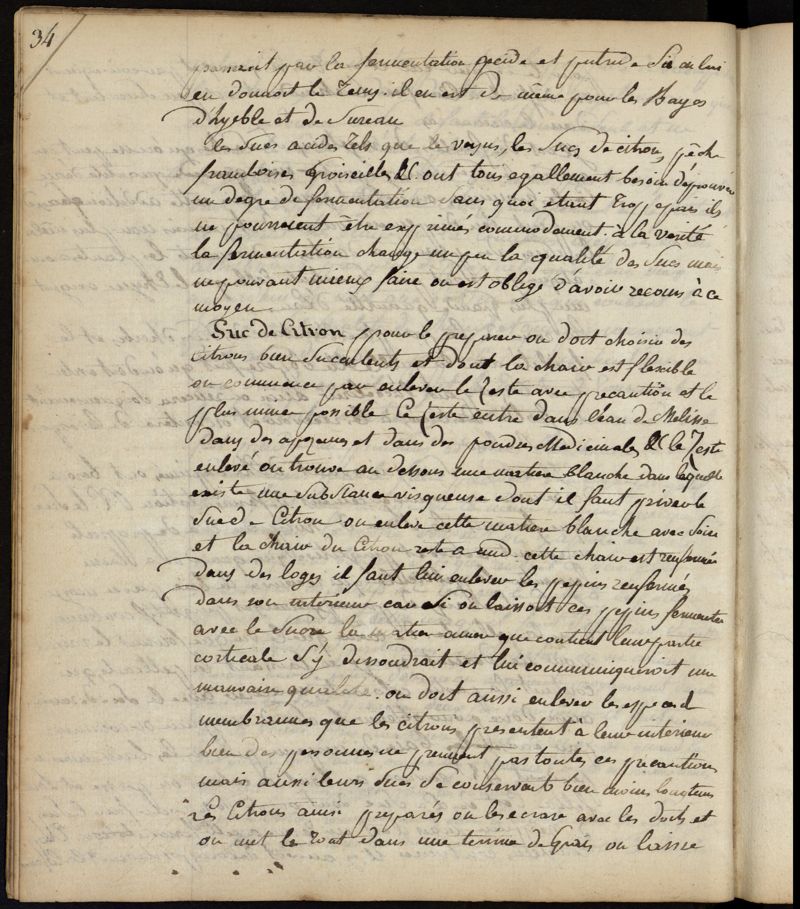 34
passeroit par la fermentation acide et putride Si on lui
en donnoit le Tems. il en est de même pour les Bayes
d'hyeble et de Sureau
les Sucs acides Tels que le verjus, les Sucs de citron, pêche
framboises groiseilles &c. ont tous egallement besoin d'eprouver
un degre de fermentation Sans quoi etant Trop epais ils
ne pourroient être exprimés commodement. à la verité
la fermentation change un peu la qualité des Sucs mais
ne pouvant mieux faire on est obligé d'avoir recours à ce
moyen
Suc de Citron pour le preparer on doit choisir des
citrons bien Succulents et dont la chair est flexible
on commence par enlever le Zeste avec precaution et le
plus mince possible Ce Zeste entre dans l'eau de Melisse
dans des apozemes et dans des poudres Medicinales &c le Zeste
enlevé on trouve au dessous une matiere blanche dans laquelle
existe une Substance visqueuse dont il faut priver le
Suc de Citron on enleve cette matiere blanche avec Soin
et la chair du Citron reste a nud. cette chair est renfermée
dans des loges il faut lui enlever les pepins renfermés
dans son interieur car Si on laissoit ces pepins fermenter
avec le Sucre la matiere amere que contient leur partie
corticale S'y dissoudrait et lui communiqueroit une
mauvaise qualité. on doit aussi enlever les especes de
membrannes que les citrons presentent à leur interieur
bien des personnes ne prennent pas toutes ces precautions
mais aussi leurs Sucs Se conservent bien moins longtems
Les Citrons ainsi preparés on les ecrase avec les doits et
on met le Tout dans une terrine de Grais on laisse